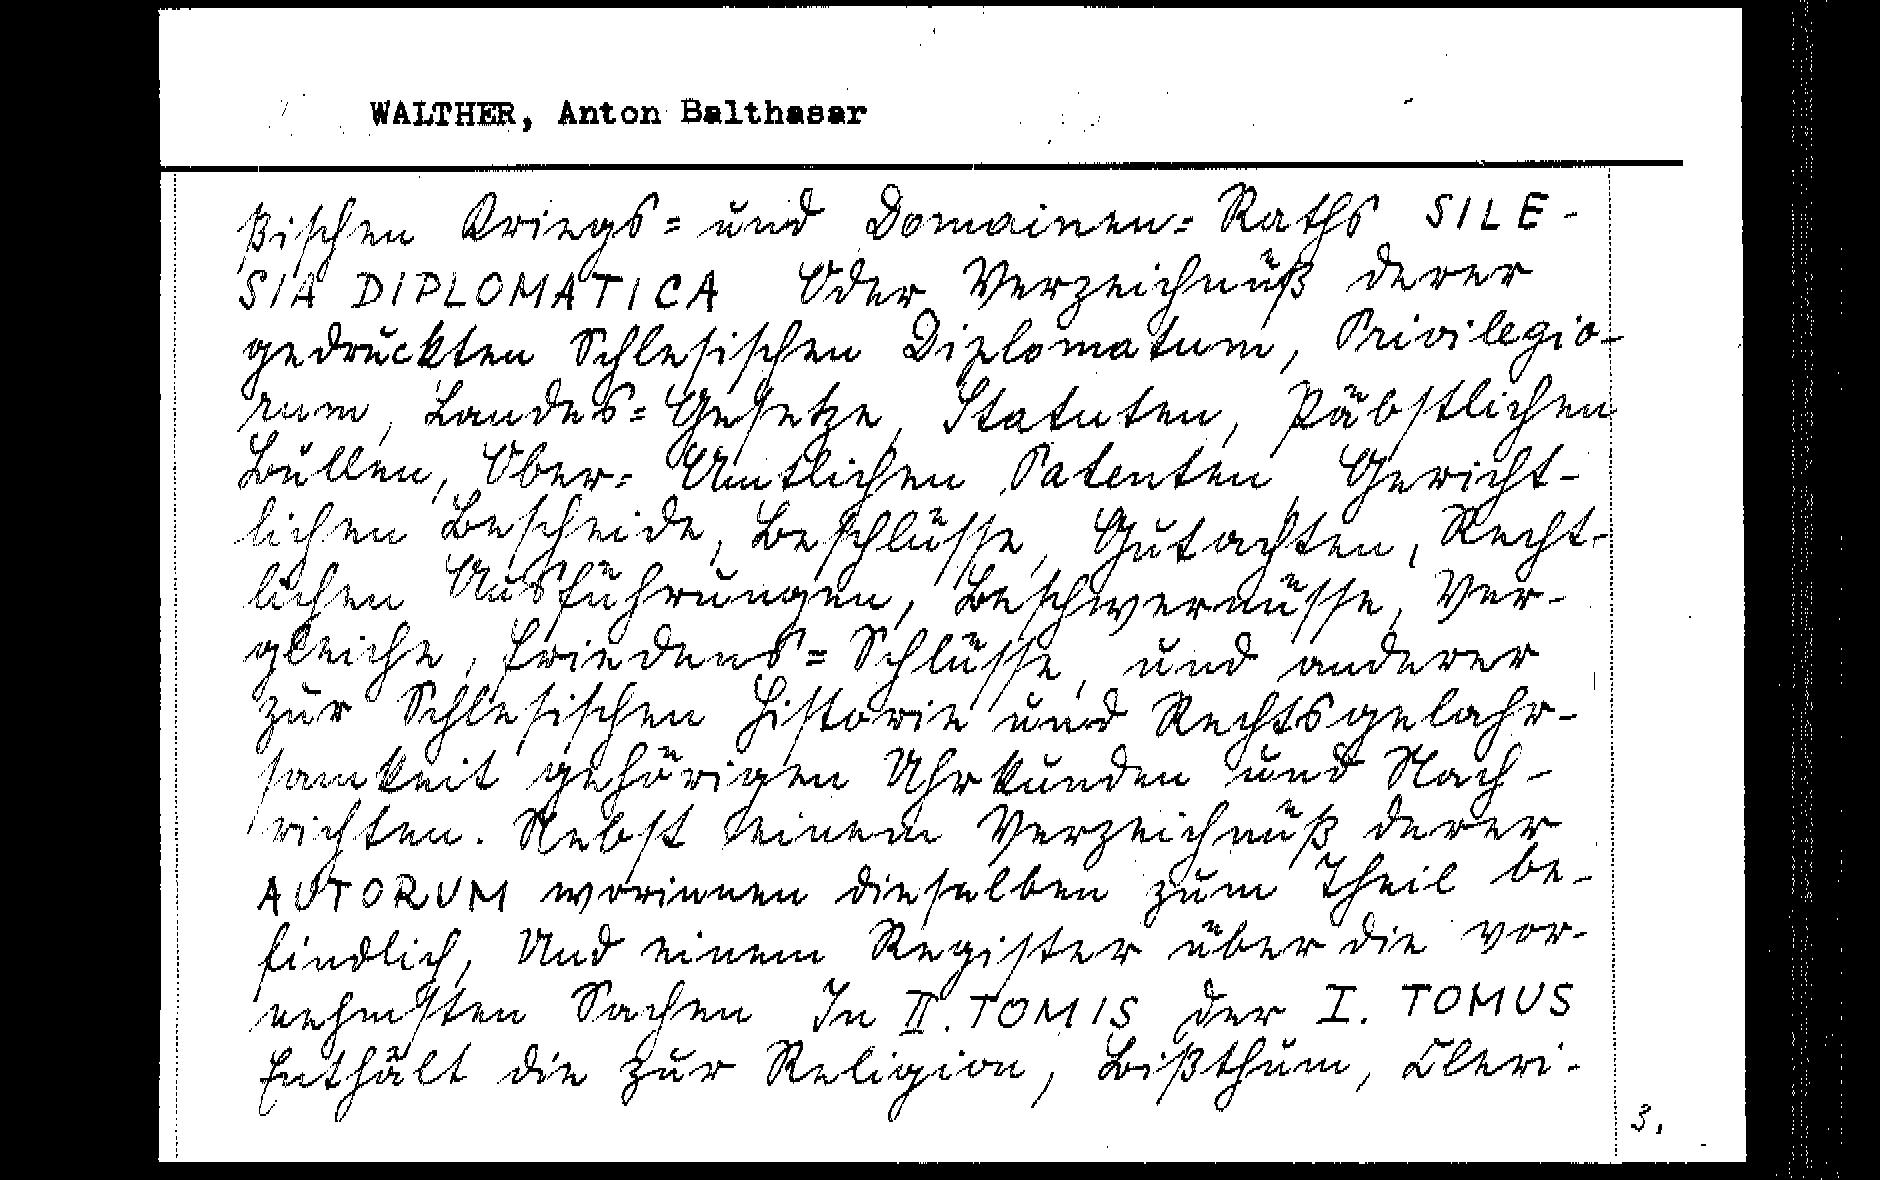 WALTHER, Anton Balthasar
ßischen Kriegs= und Domainen= Raths SILE-
SIA DIPLOMATICA Oder Verzeichnüß derer
gedruckten Schlesischen Diplomatum, Privilegio-
rum, Landes= Gesetze, Statuten, Päbstlichen
Bullen, Ober= Amtlichen Patenten, Gericht-
lichen Bescheide, Beschlüsse, Gutachten, Recht-
lichen Ausführungen, Beschwernüsse, Ver-
gleiche, Friedens= Schlüsse, und anderer
zur Schlesischen Historie und Rechtsgelahr-
samkeit gehörigen Uhrkunden und Nach-
richten. Nebst einem Verzeichnüß derer
AUTORUM worinnen dieselben zum Theil be-
findlich, Und einem Register über die vor-
nehmsten Sachen In II. TOMIS der I. TOMUS
Enthält die zur Religion, Bißthum, Cleri-
3.